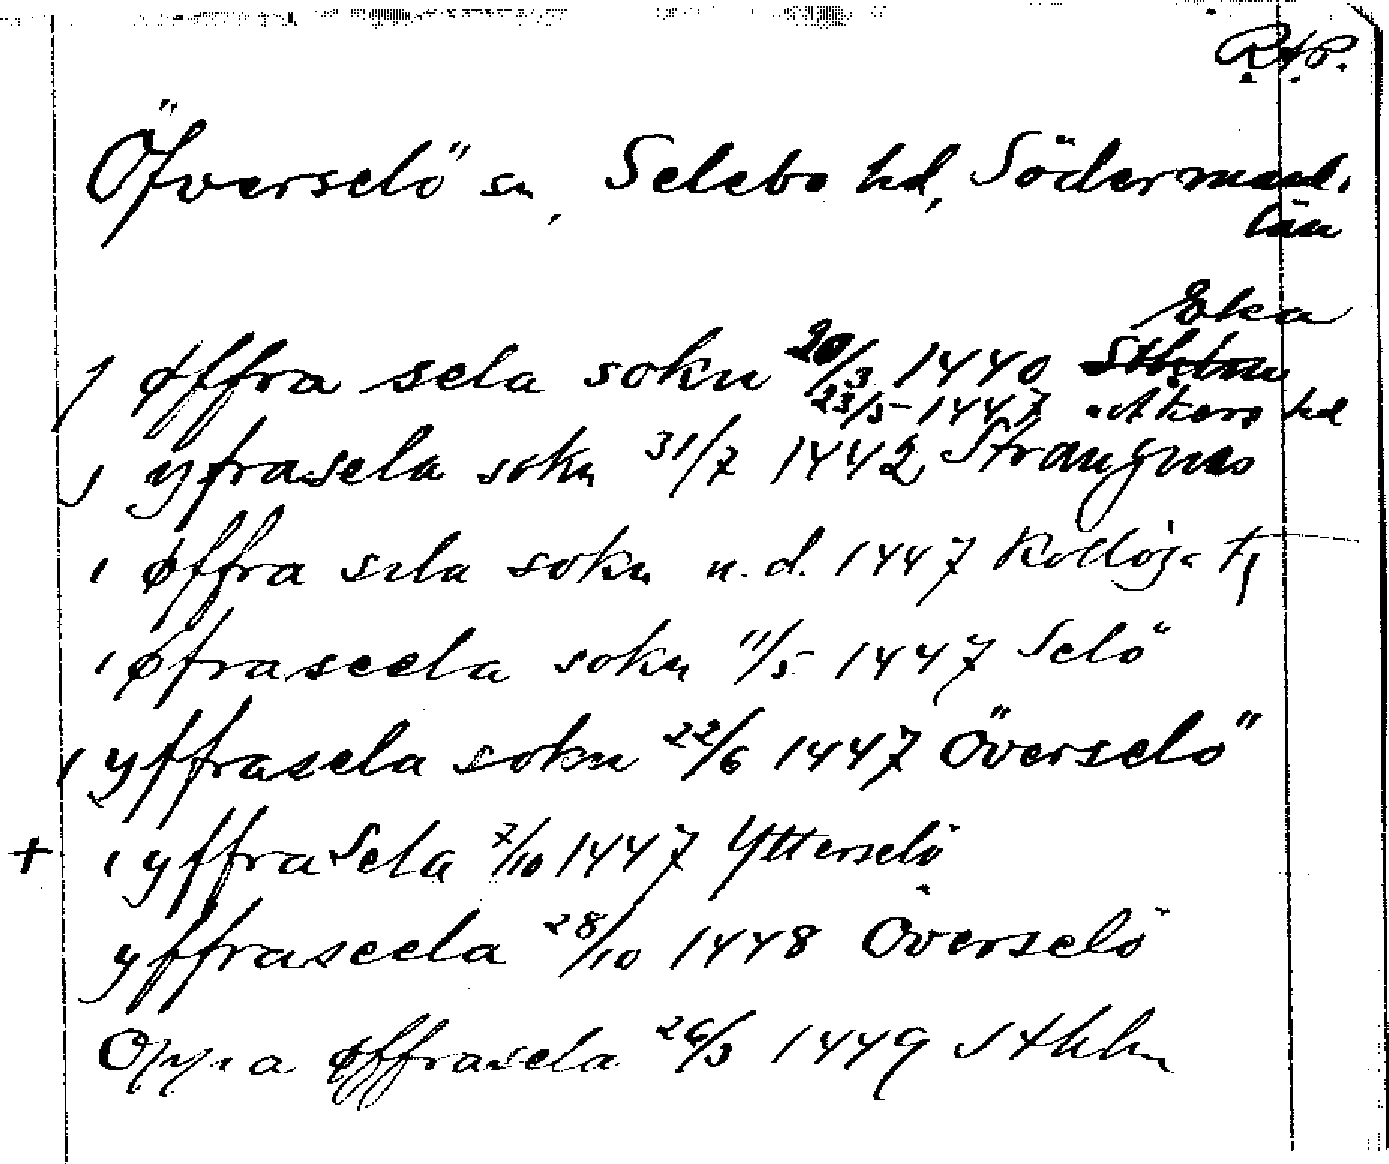 R.A.P.
Öfverselö sn, Selebo hd, Södermanl.
län
Eka
j øffra sela sokn 20/3 1440 Sthlm
23/5 1447 Åkers hd
j yfrasela sokn 31/7 1442 Strängnäs
i øffra sela sokn u.d. 1447
i øfraseela sokn 11/5 1447 Selö
i yffrasela sokn 22/6 1447 Överselö
+ i yffra Sela 7/10 1447 Ytterselö
yffraseela 28/10 1448 Överselö
Oppa øffrasela 26/3 1449 Sthlm